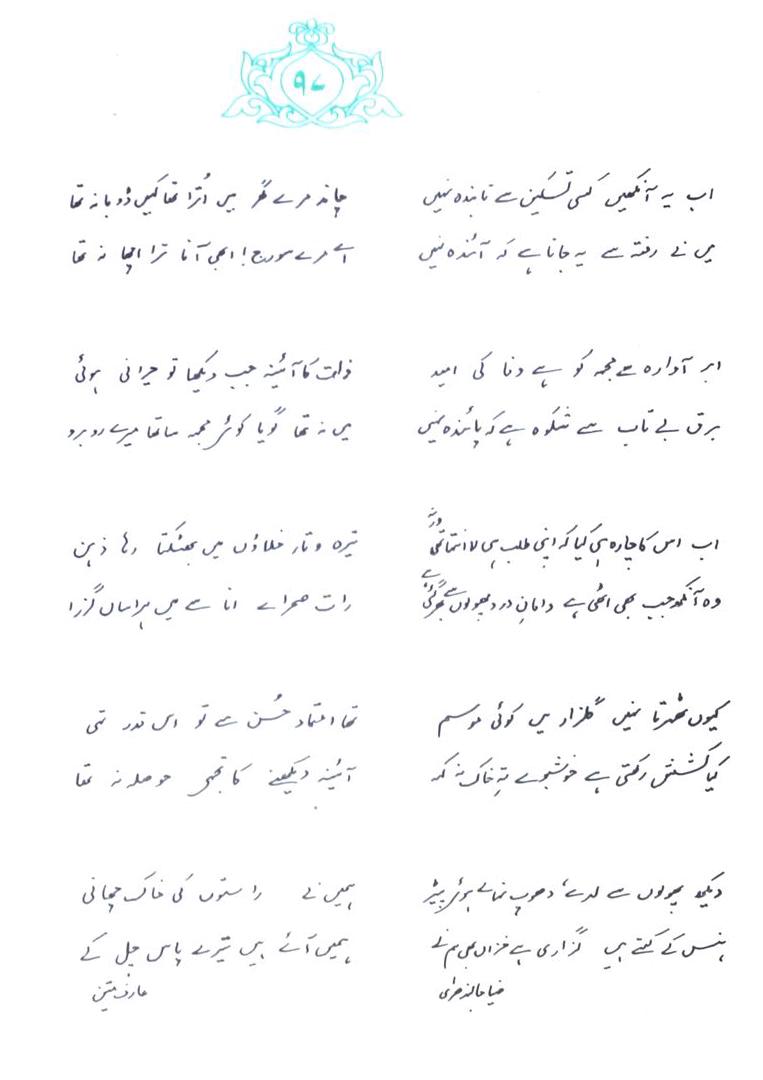 ۹۷
اب یہ آنکھیں کسی تسکین سے تابندہ نہیں
میں نے رفتہ سے یہ جانا ہے کہ آئندہ نہیں
ابر آوارہ سے مجھ کو ہے وفا کی امید
برق بے تاب سے شکوہ ہے کہ پائندہ نہیں
اب اس کا چارہ ہی کیا کہ اپنی طلب ہی لا انتہا تھی ورنہ
وہ آنکھ جب بھی اٹھی ہے دامانِ درد پھولوں سے بھر گئی ہے
کیوں ٹھہرتا نہیں گلزار میں کوئی موسم
کیا کشش رکھتی ہے خوشبوئے تہِ خاک نہ کہہ
دیکھ پھولوں سے لدے، دھوپ نہائے ہوئے پیڑ
ہنس کے کہتے ہیں گزاری ہے خزاں بھی ہم نے
ضیا جالندھری
چاند مرے گھر میں اُترا تھا کہیں ڈوبا نہ تھا
اے مرے سورج! ابھی آنا ترا اچھا نہ تھا
ذات کا آئینہ جب دیکھا تو حیرانی ہوئی
میں نہ تھا گویا کوئی مجھ سا تھا میرے روبرو
تیرہ و تار خلاؤں میں بھٹکتا رہا ذہن
رات صحرائے انا سے میں ہراساں گزرا
تھا اعتماد حُسن سے تو اس قدر تہی
آئینہ دیکھنے کا تجھے حوصلہ نہ تھا
ہمیں نے راستوں کی خاک چھانی
ہمیں آئے ہیں تیرے پاس چل کے
عارف متین